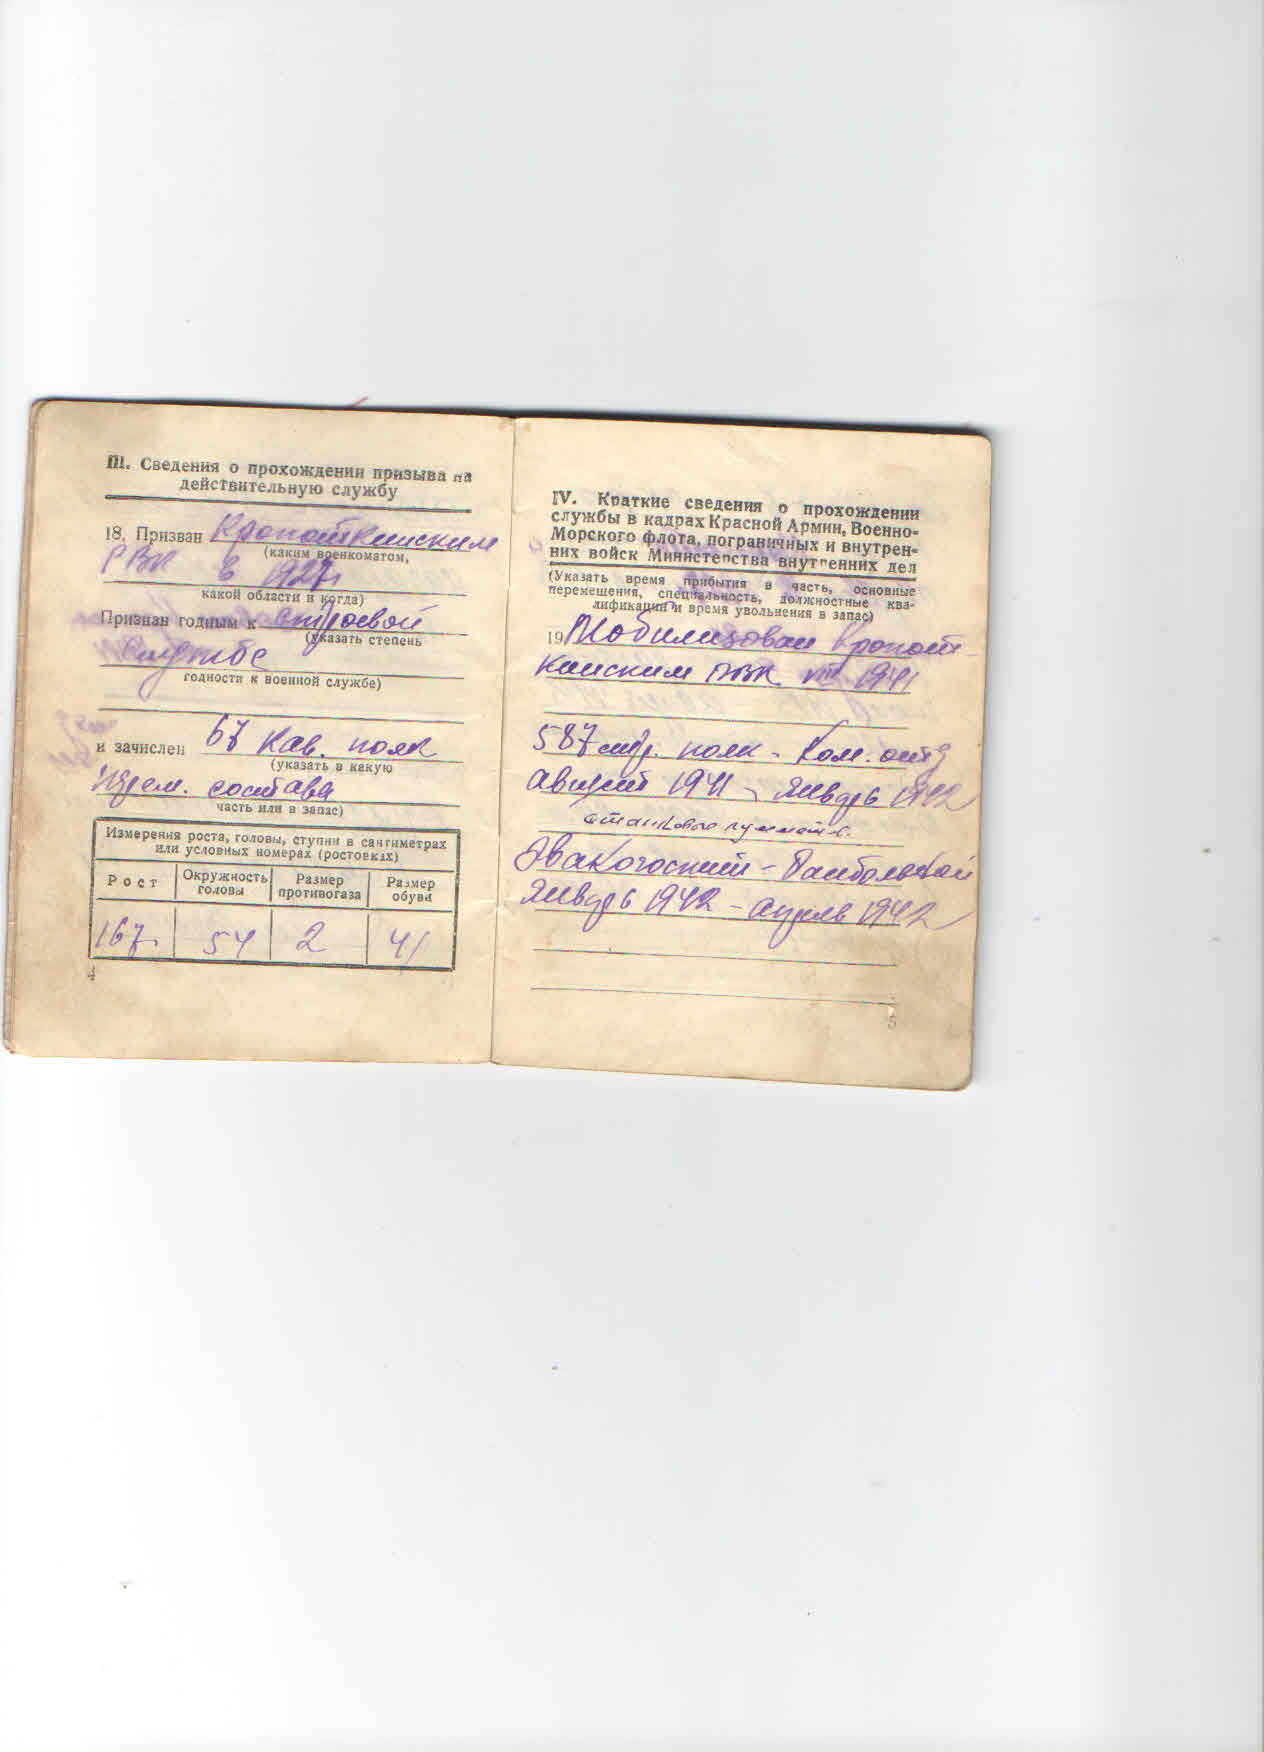 III. Сведения о прохождении призыва на
действительную службу
18. Призван Кропоткинским
(каким военкоматом,
РВК в 1927 г
какой области и когда)
Признан годным к строевой
(указать степень
службе
годности к военной службе)
и зачислен 67 кав. полк
(указать в какую
перем. состава
часть или в запас)
Измерения роста, головы, ступни в сантиметрах
или условных номерах (ростовках)
Рост Окружность головы Размер противогаза Размер обуви
167 54 2 41
4
IV. Краткие сведения о прохождении
службы в кадрах Красной Армии, Военно-
Морского флота, пограничных и внутрен-
них войск Министерства внутренних дел
(Указать время прибытия в часть, основные
перемещения, специальность, должностные ква-
лификации и время увольнения в запас)
19 Мобилизован Кропот-
кинским РВК VIII-1941
587 стр. полк - Ком. отд
август 1941 - Январь 1942
станкового
Эвакогоспит -
Январь 1942 - апрель 1942
5